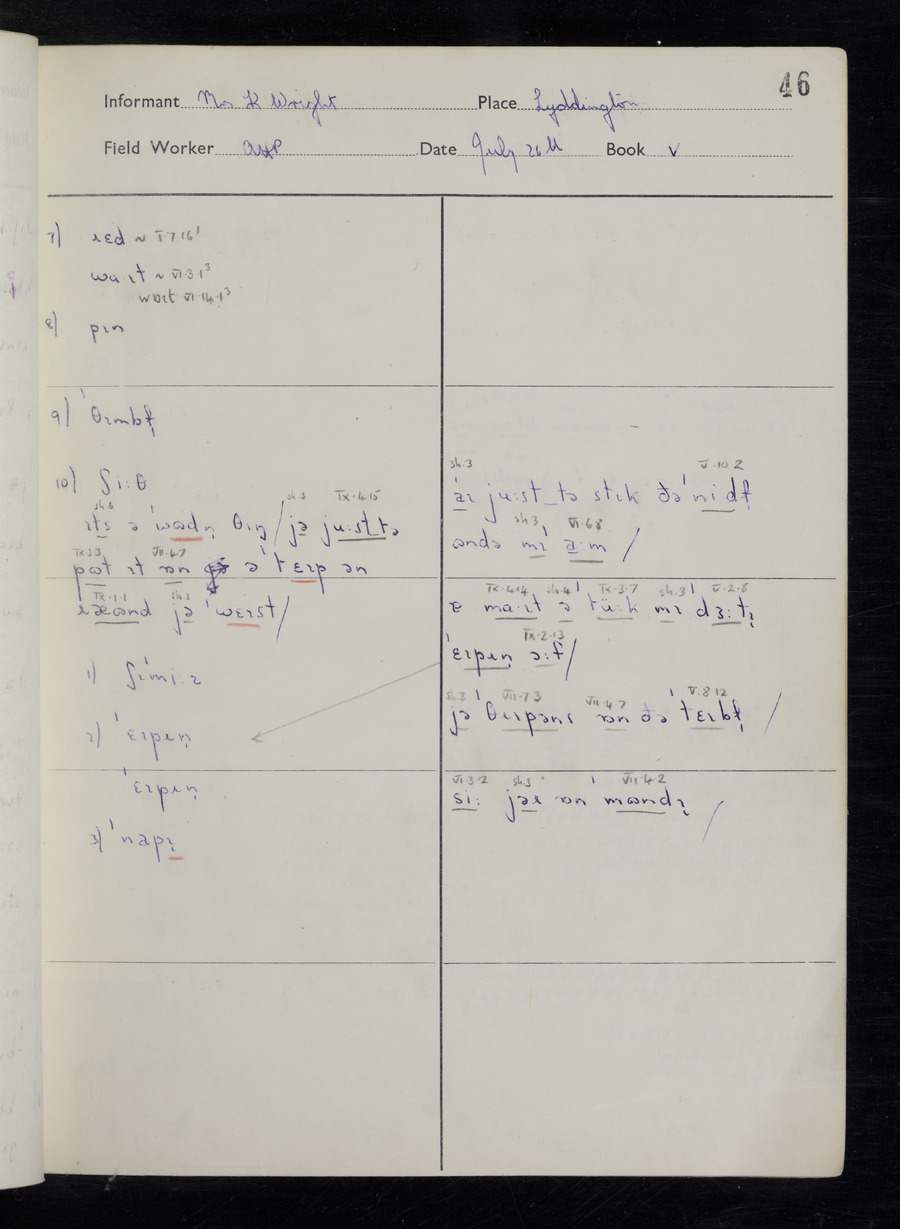 46
Informant Mrs K Wright Place Lyddington
Field Worker Date July 26th Book V
7) ɹɛd ~ I·7·16¹
waɪt ~ VI·3·1³
wɒɪt VI·14·1³
8) pɪn
9) ˈθɪmbɫ̩
10) ʃiːθ
sh.6 sh.3 IX·4·15
ɪts ə ˈwʊdn̩ θɪŋ / jə juːst tə
IX·3·3 VII·4·7
pʊt ɪt ɒn ə ˈtɛɪp ən
IX·1·1 sh.3
ɹæʊnd jə ˈwɛɪst /
1) ʃɪˈmiːz
2) ˈɛɪpɹn̩
ˈɛɪpɹn̩
3) ˈnapɪ
sh.3 V·10·2
aɪ juːst tə stɪk ðə ˈnidɫ̩
sh.3 VI·6·8
ʊndə mɪ aːm /
IX·4·4 sh.4 IX·3·7 sh.3 V·2·8
maɪt ə tüːk mɪ dɜːtɪ
IX·2·13
ˈɛɪpɹn̩ ɔːf /
sh.3 VII·7·3 VII·4·7 V·8·12
jə ˈθɹɪpəns ɒn ðə ˈtɛɪbɫ̩ /
VI·3·2 sh.3 VII·4·2
siː jəɹ ɒn ˈmʊndɪ /